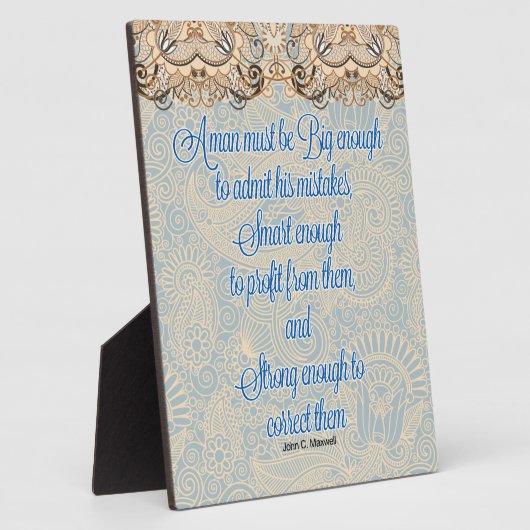 A man must be Big enough
to admit his mistakes,
Smart enough
to profit from them,
and
Strong enough to
correct them
John C. Maxwell